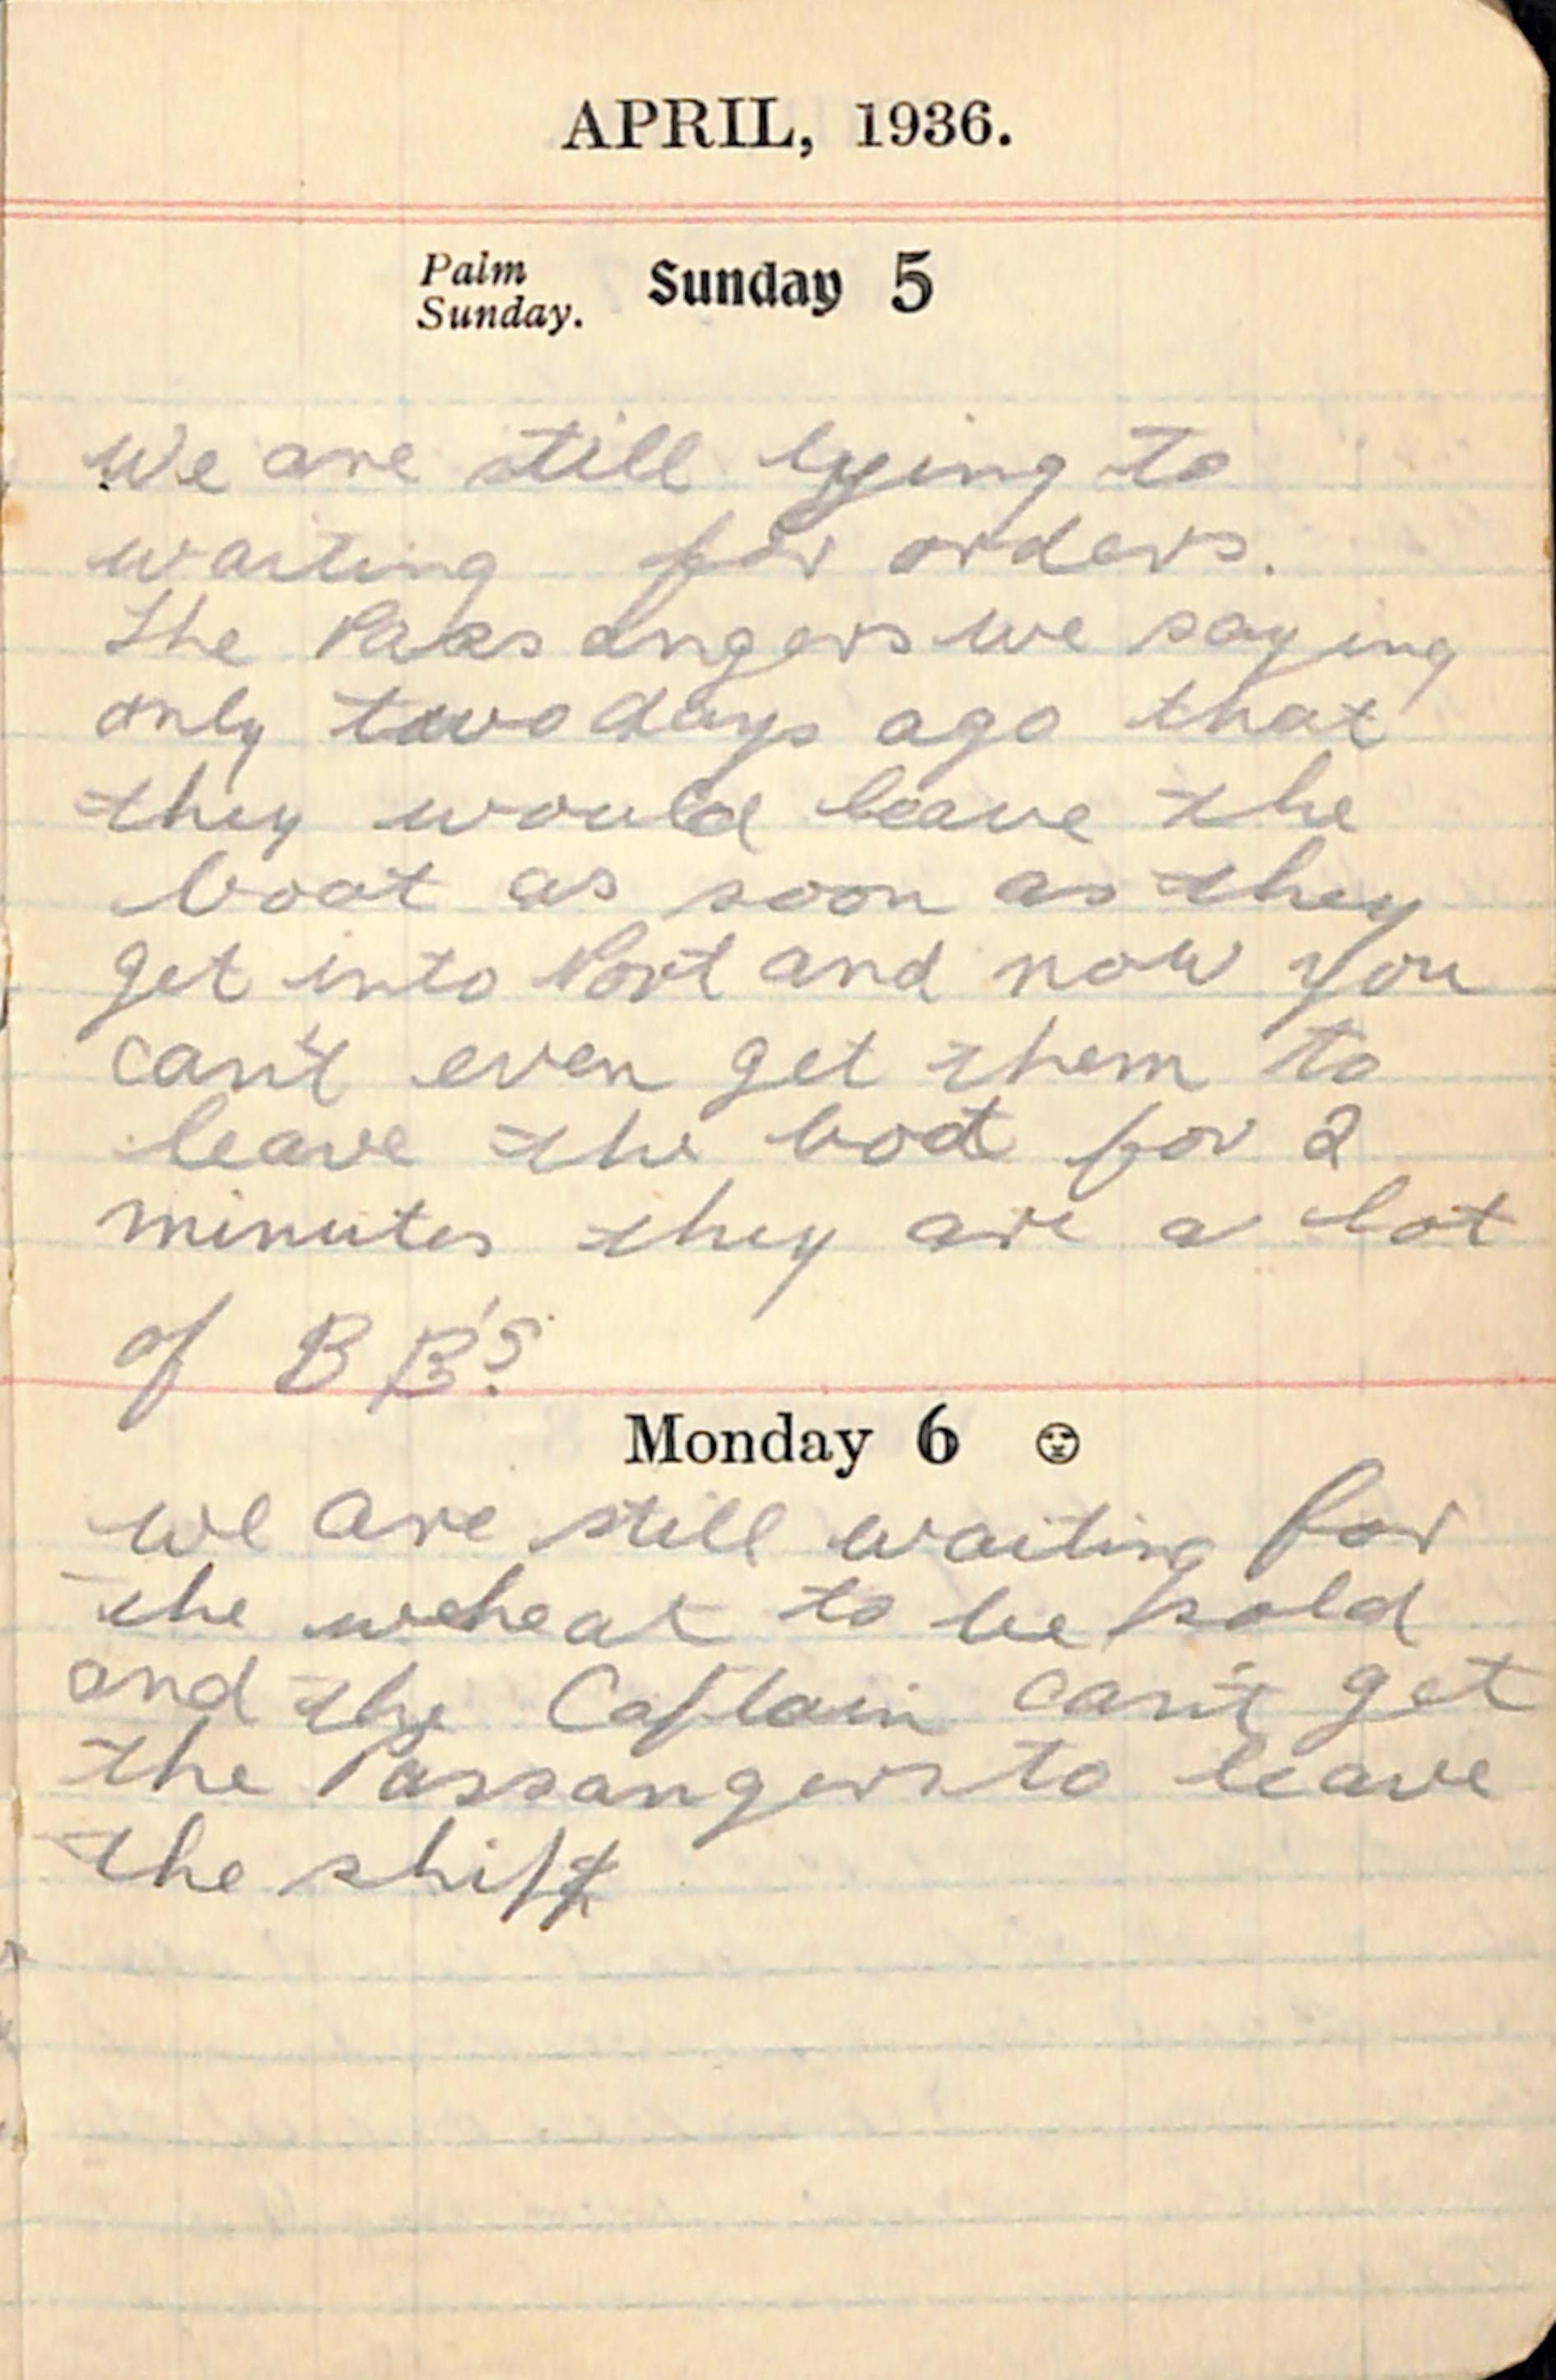 APRIL, 1936.
Palm
Sunday. Sunday 5
We are still lying to
waiting for orders.
The Passangers we saying
only two days ago that
they would leave the
boat as soon as they
get into Port and now you
can't even get them to
leave the boat for 2
minutes they are a lot
of B B's.
Monday 6
we are still waiting for
the wheat to be sold
and the Captain can't get
the Passangers to leave
the ship